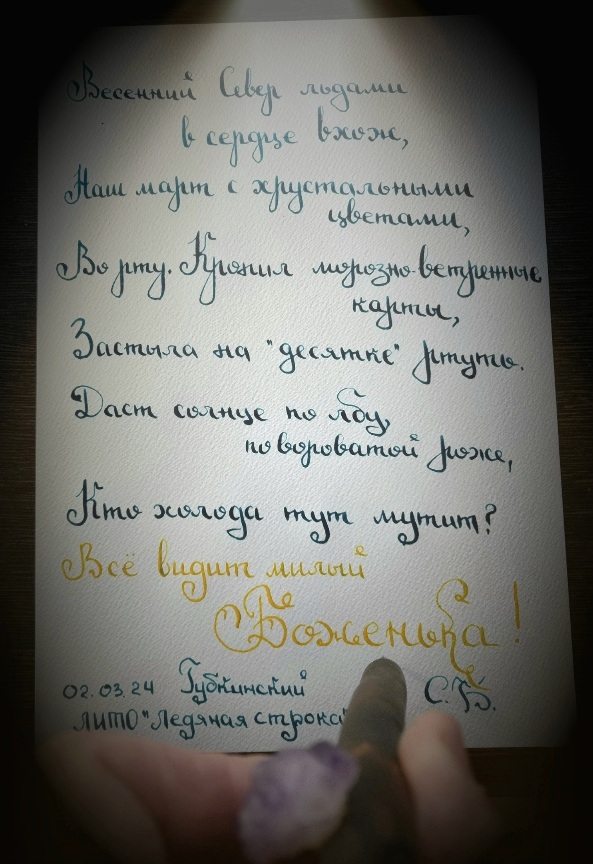 Весенний Север льдами
в сердце вхож,
Наш март с хрустальными
цветами,
Во рту. Кропил морозно-ветренные
карты,
Застыла на "десятке" ртуть.
Даст солнце по лбу,
по вороватой роже,
Кто холода тут мутит?
Всё видит милый
Боженька!
02.03.24 Губкинский С.Б.
ЛИТО "Ледяная строка"